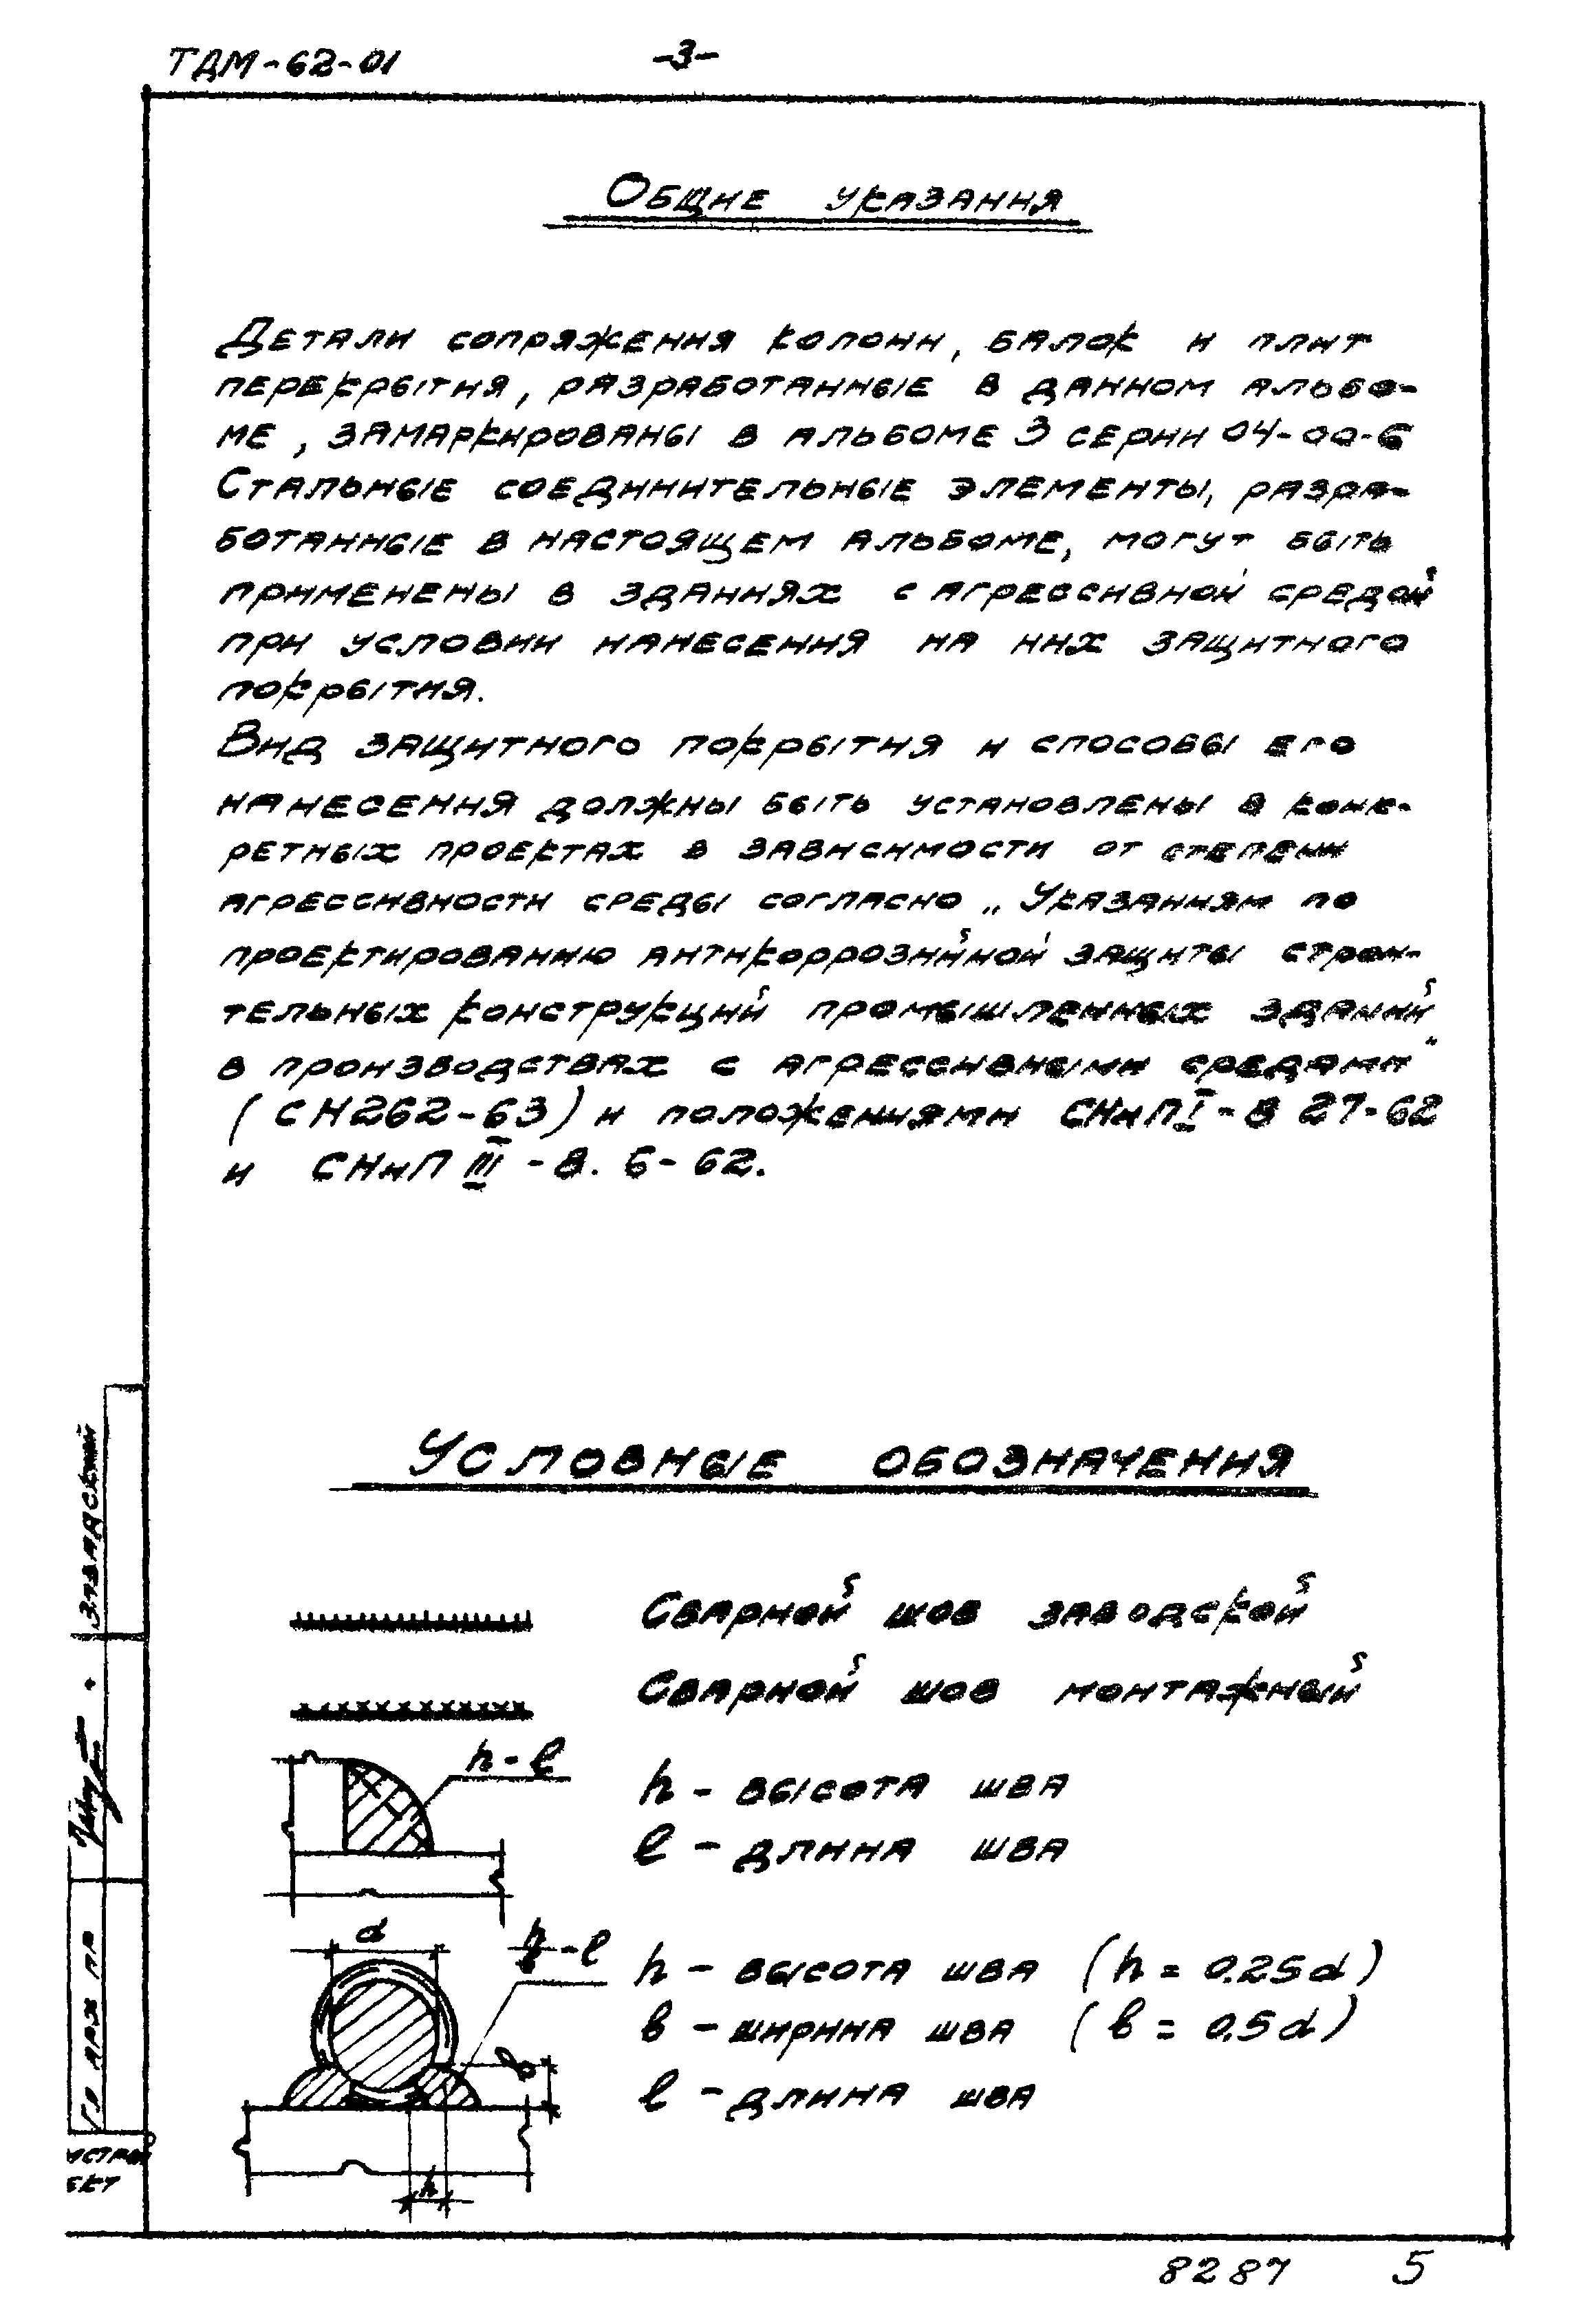 ТДМ-62-01
-3-
Общие указания
Детали сопряжения колонн, балок и плит
перекрытия, разработанные в данном альбо-
ме, замаркированы в альбоме 3 серии 04-00-6
Стальные соединительные элементы, разра-
ботанные в настоящем альбоме, могут быть
применены в зданиях с агрессивной средой
при условии нанесения на них защитного
покрытия.
Вид защитного покрытия и способы его
нанесения должны быть установлены в конк-
ретных проектах в зависимости от степени
агрессивности среды согласно „Указаниям по
проектированию антикоррозийной защиты строи-
тельных конструкций промышленных зданий
в производствах с агрессивными средами"
(СН262-63) и положениями СНиП I-В 27-62
и СНиП III-В. 6-62.
Условные обозначения
Сварной шов заводской
Сварной шов монтажный
h-ℓ
h - высота шва
ℓ - длина шва
d
h/в-ℓ
h - высота шва (h = 0.25d)
в - ширина шва (в = 0.5d)
ℓ - длина шва
в
h
Завадский
Гл арх пр
8287 5